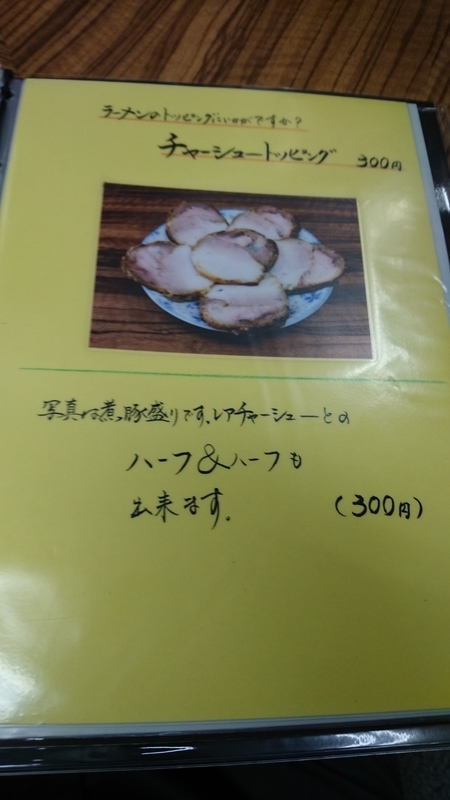 ラーメンのトッピングにいかがですか?
チャーシュートッピング 300円
写真は煮豚盛りです、レアチャーシューとの
ハーフ&ハーフも
出来ます。 (300円)